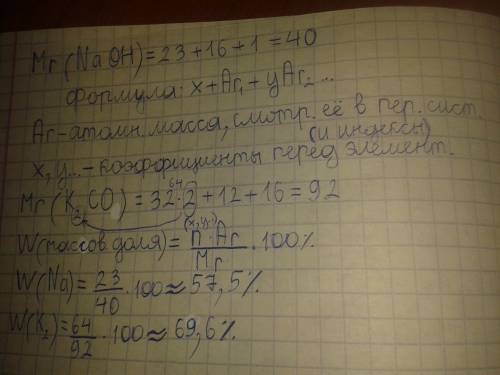 Mr(NaOH)=23+16+1=40
Формула: x+Ar₁+yAr₂...
Ar-атомн. масса, смотр. её в пер. сист.
x, y...-коэффициенты перед элемент.
(и индексы)
64
Mr(K₂CO)=32·2+12+16=92
(x,y..)
W(массов доля)=n·Ar/Mr·100%
W(Na)=23/40·100≈57,5%
W(K₂)=64/92·100≈69,6%